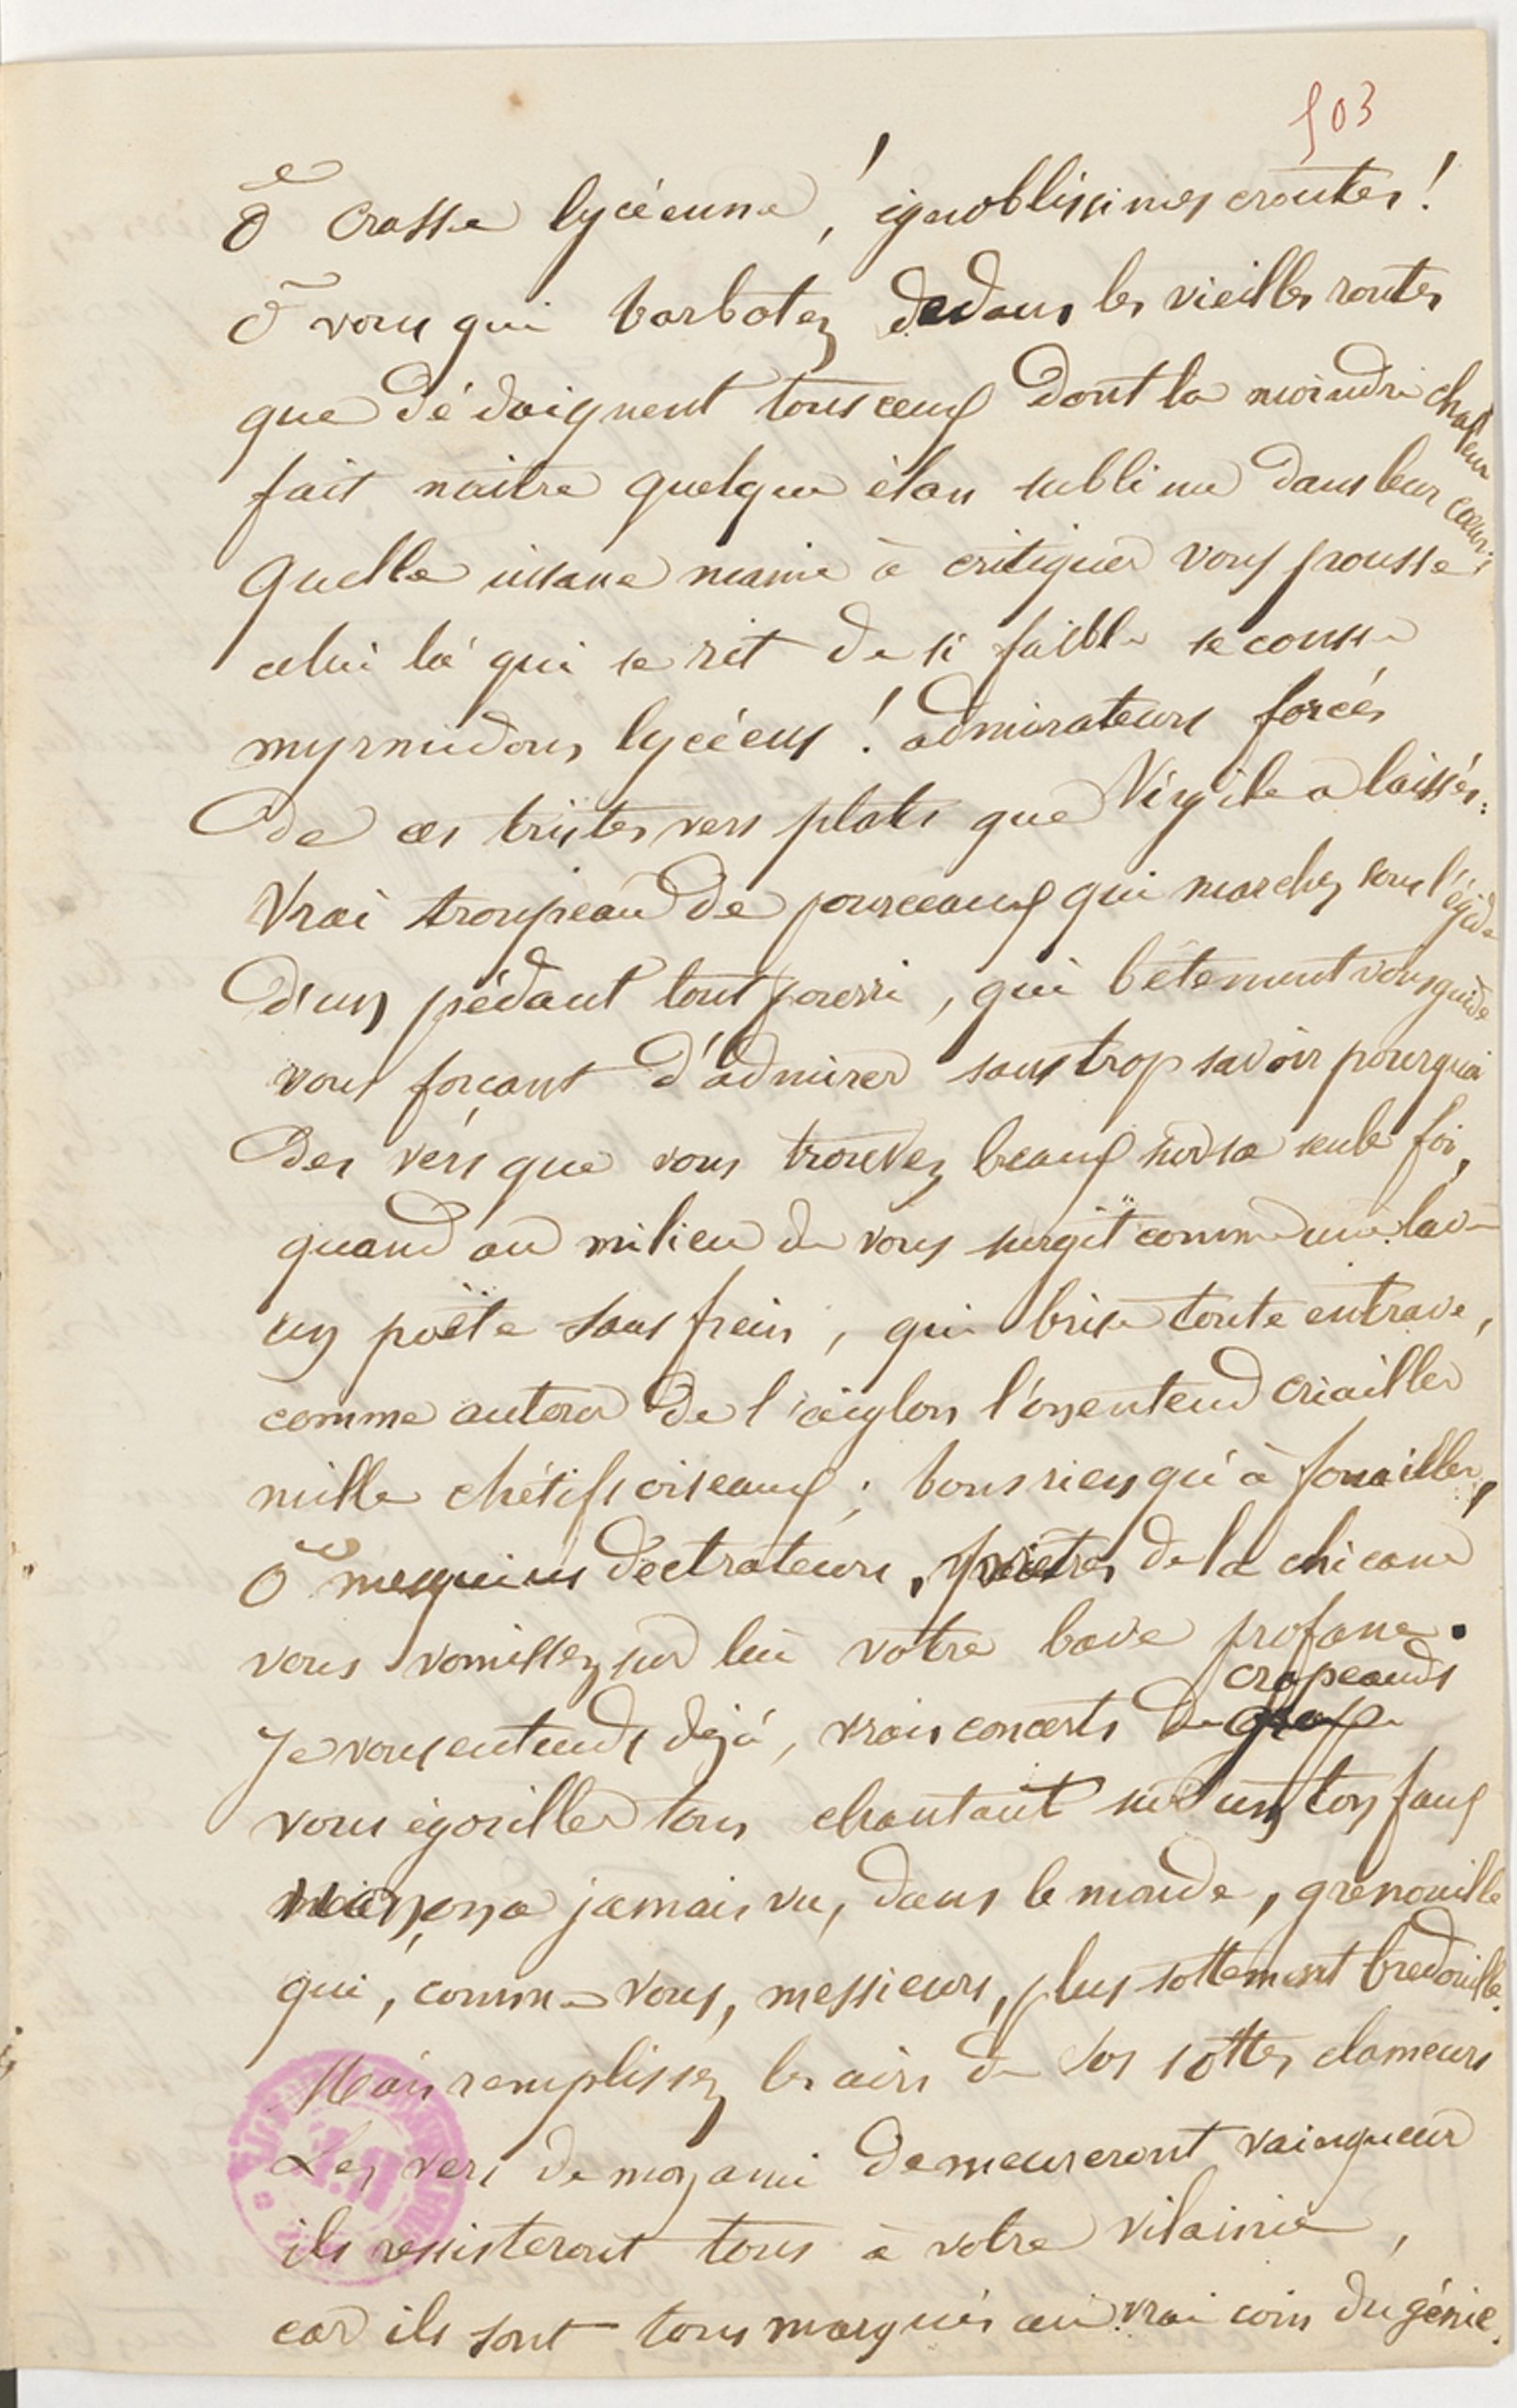 503
Ô crasse lycéenne ! ignoblissimes croutes !
Ô vous qui barbotez dedans les vieilles routes
que dédaignent tous ceux dont la moindre chaleur
fait naitre quelque élan sublime dans leur cœur ;
quelle insane manie à critiquer vous pousse
celui là qui se rit de si faible secousse
myrmidons lycéens ! admirateurs forcés
De ces tristes vers plats que Virgile a laissés :
Vrai troupeau de pourceaux qui marchez sous l'égide
D'un pédant tout pourri, qui bêtement vous guide
vous forçant d'admirer sans trop savoir pourquoi
Des vers que vous trouvez beaux sur sa seule foi,
quand au milieu de vous surgit comme une lave
un poëte sans frein, qui brise toute entrave,
comme autour de l'aiglon l'on entend criailler
mille chétifs oiseaux ; bons rien qu'à fouailler,
Ô mesquins déctrateurs, prêtres de la chicane
vous vomissez sur lui votre bave profane.
crapeauds
Je vous entends déjà, vrais concerts de
vous égosiller tous chantant sur un ton faux
mais on a jamais vu, dans le monde, grenouille
qui, comme vous, messieurs, plus sottement bredouille.
Mais remplissez les airs de vos sottes clameurs
Les vers de mon ami demeureront vainqueur
ils resisteront tous à votre vilainie,
car ils sont tous marqués au vrai coin du génie.